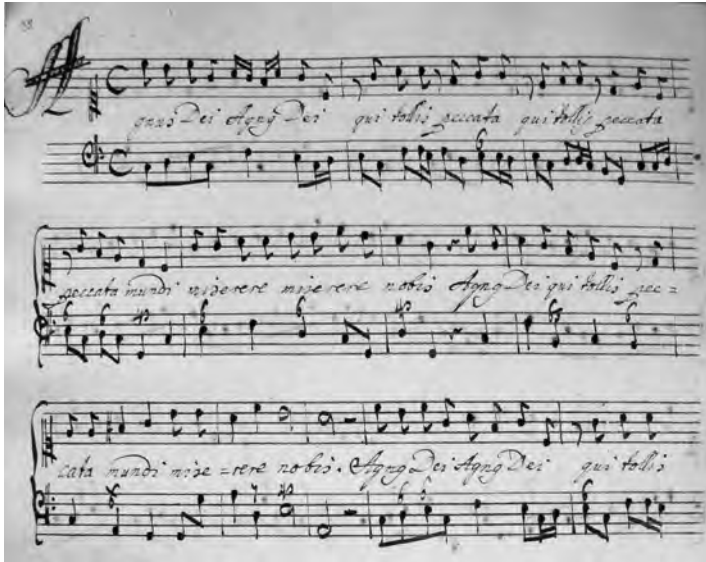 Agnus Dei Agnꝰ Dei qui tollis peccata qui tollis peccata
6
peccata mundi miserere miserere nobis Agnꝰ Dei qui tollis pec=
cata mundi mise=rere nobis. Agnꝰ Dei Agnꝰ Dei qui tollis